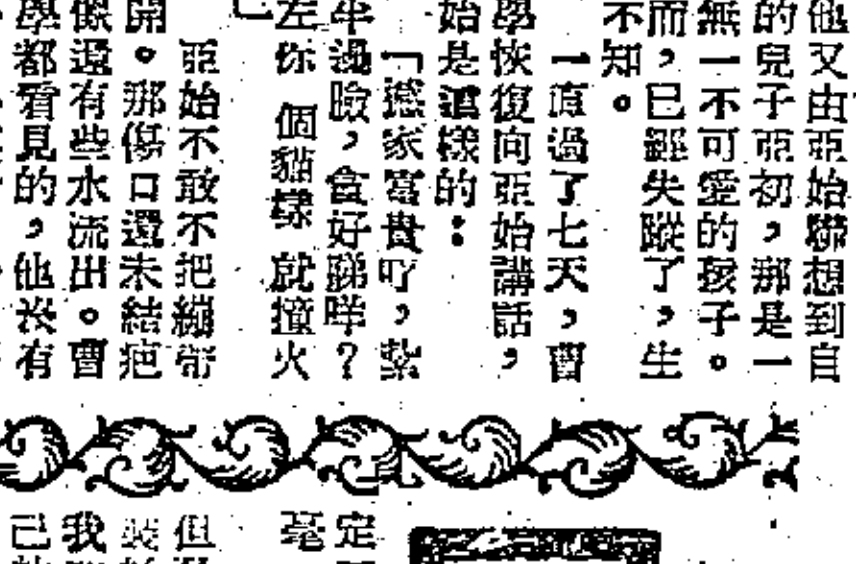 他又由亞始聯想到自
的兒子亞初，那是一
無一不可愛的孩子。
而，已經失蹤了，生
不知。
一直過了七天，曹
學恢復向亞始講話，
始是這樣的：
「撼家富貴吖，紮
半邊臉，食好睇咩？
左你 個貓樣 就撞火
亞始不敢不把繃帶
開。那傷口還未結疤
還有些水流出。曹
學都看見的，他沒有
定
毫
但
我
己